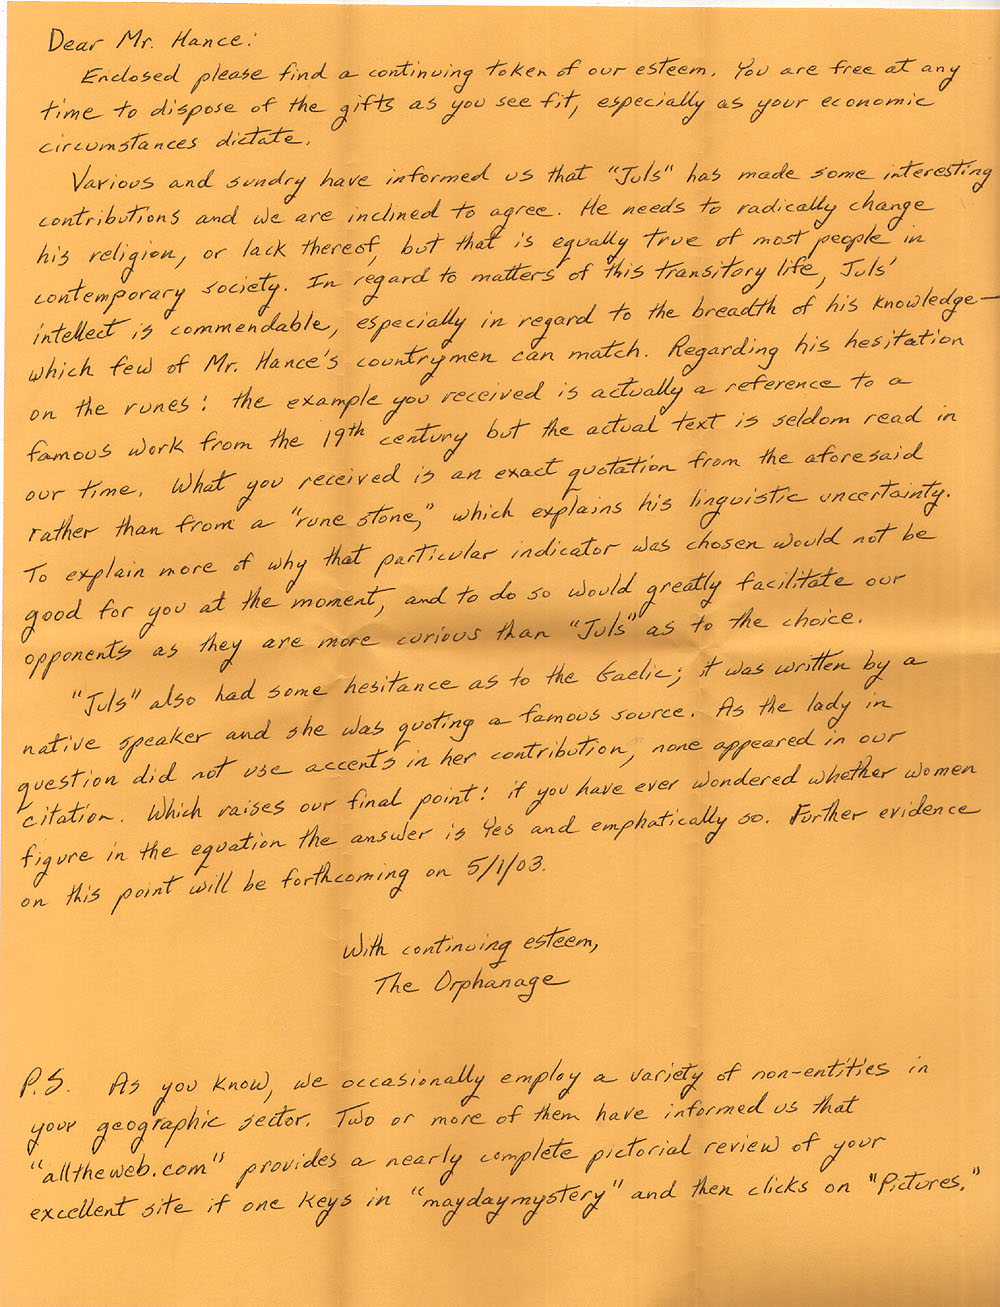 Dear Mr. Hance:
Enclosed please find a continuing token of our esteem. You are free at any
time to dispose of the gifts as you see fit, especially as your economic
circumstances dictate.
Various and sundry have informed us that "Juls" has made some interesting
contributions and we are inclined to agree. He needs to radically change
his religion, or lack thereof, but that is equally true of most people in
contemporary society. In regard to matters of this transitory life, Juls'
intellect is commendable, especially in regard to the breadth of his knowledge—
which few of Mr. Hance's countrymen can match. Regarding his hesitation
on the runes: the example you received is actually a reference to a
famous work from the 19th century but the actual text is seldom read in
our time. What you received is an exact quotation from the aforesaid
rather than from a "rune stone," which explains his linguistic uncertainty.
To explain more of why that particular indicator was chosen would not be
good for you at the moment, and to do so would greatly facilitate our
opponents as they are more curious than "Juls" as to the choice.
"Juls" also had some hesitance as to the Gaelic; it was written by a
native speaker and she was quoting a famous source. As the lady in
question did not use accents in her contribution, none appeared in our
citation. Which raises our final point: if you have ever wondered whether women
figure in the equation the answer is Yes and emphatically so. Further evidence
on this point will be forthcoming on 5/1/03.
With continuing esteem,
The Orphanage
P.S. As you know, we occasionally employ a variety of non-entities in
your geographic sector. Two or more of them have informed us that
"alltheweb.com" provides a nearly complete pictorial review of your
excellent site if one keys in "maydaymystery" and then clicks on "Pictures."